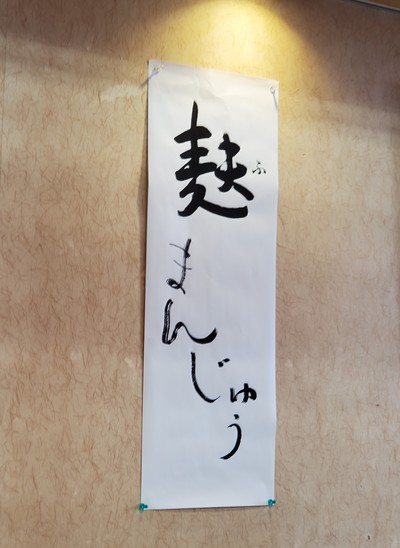 麩
ふ
まんじゅう